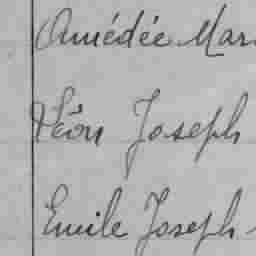 Amédée Mar
Léon Joseph
Emile Joseph